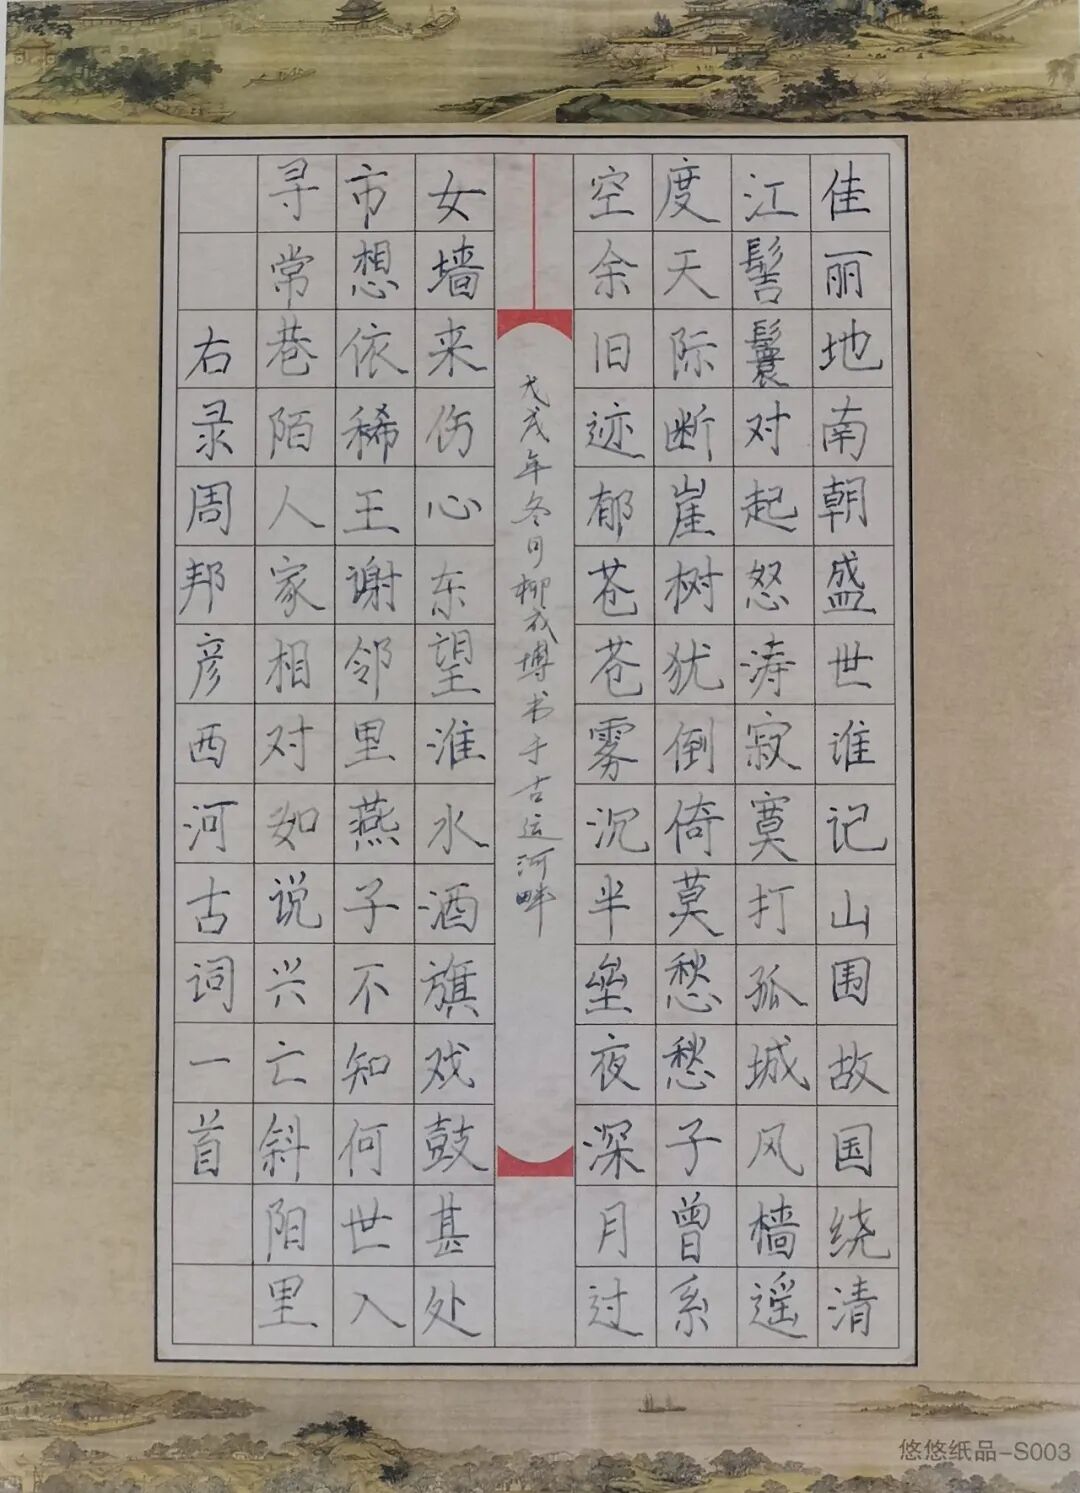 佳丽地南朝盛世谁记山围故国绕清
江髻鬟对起怒涛寂寞打孤城风樯遥
度天际断崖树犹倒倚莫愁愁子曾系
空余旧迹郁苍苍雾沉半垒夜深月过
戊戌年冬日柳成博书于古运河畔
女墙来伤心东望淮水酒旗戏鼓甚处
市想依稀王谢邻里燕子不知何世入
寻常巷陌人家相对如说兴亡斜阳里
右录周邦彦西河古词一首
悠悠纸品-S003